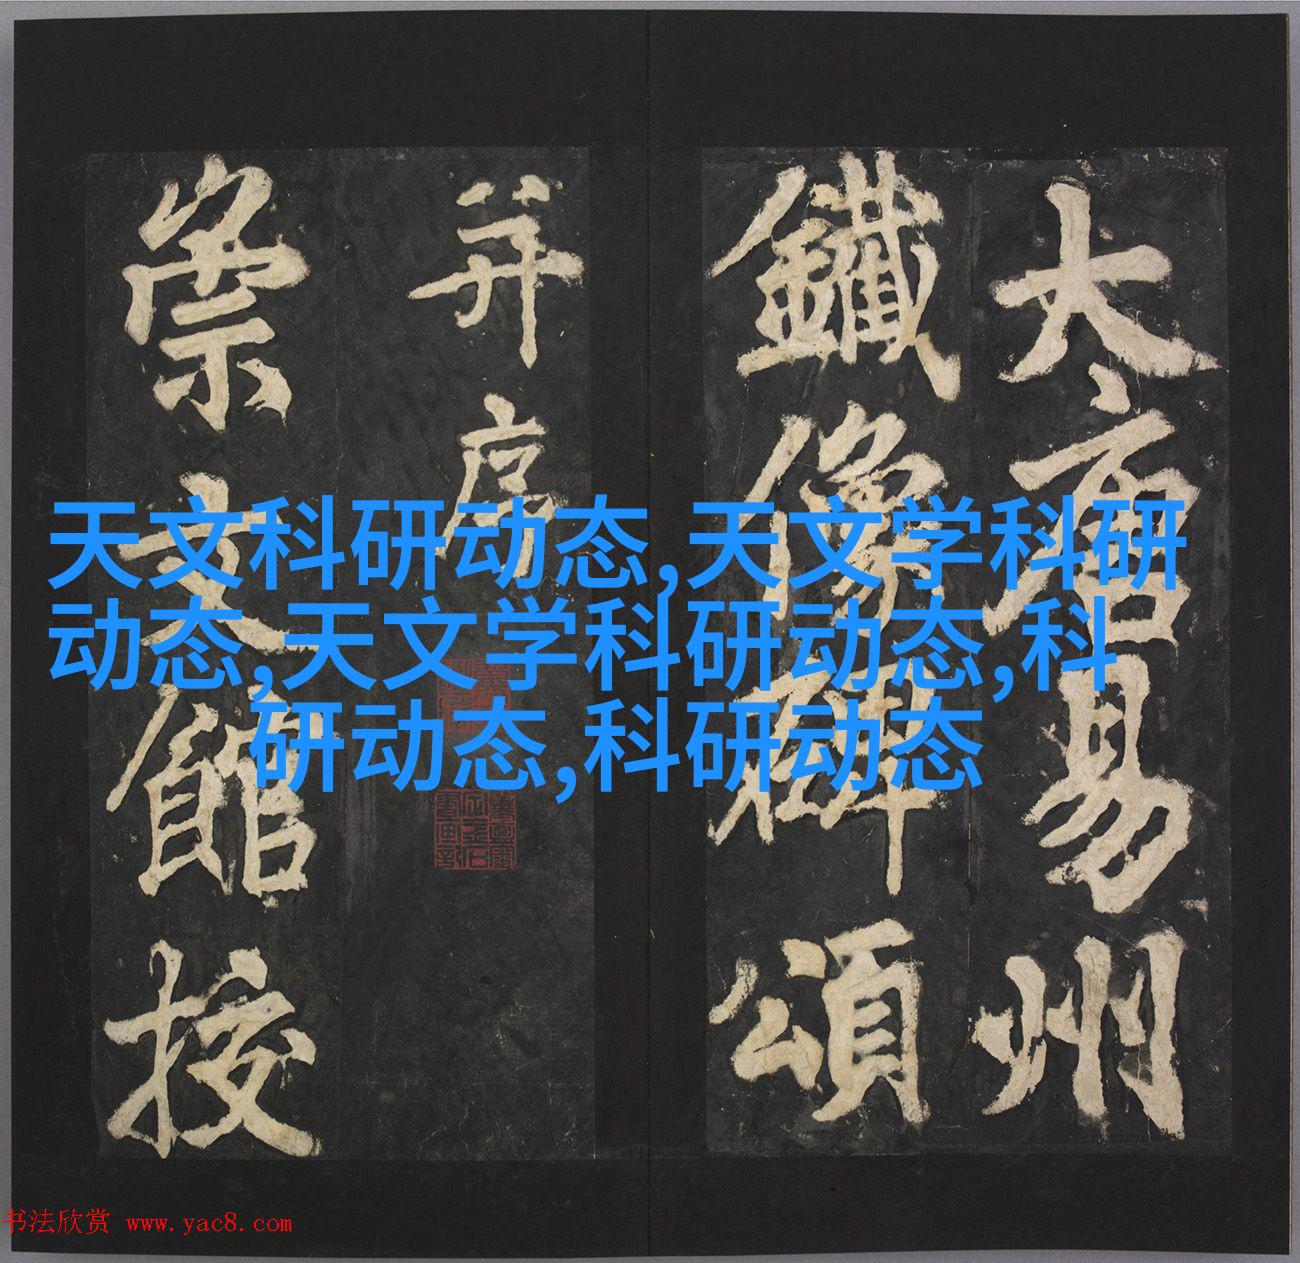 大唐易州
鐵像碑頌
并序
崇文館挍
天文科研动态,天文学科研
动态,天文学科研动态,科
研动态,科研动态
书法欣赏 www.yac8.com